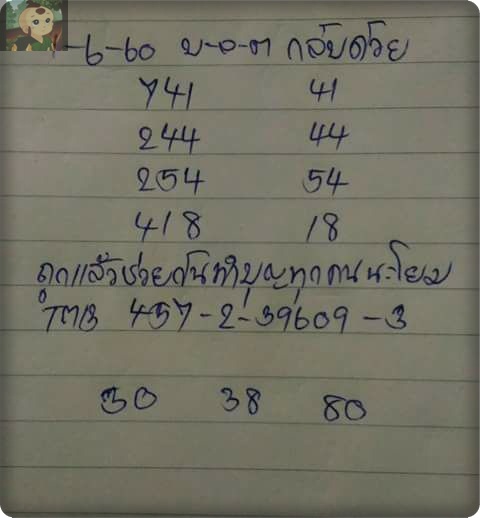 -6-60 บ-อ-ต กลับด้วย
741 41
244 44
254 54
418 18
ถูกแล้วช่วยกันทำบุญทุกคนนะโยม
457-2-39609-3
30 38 80